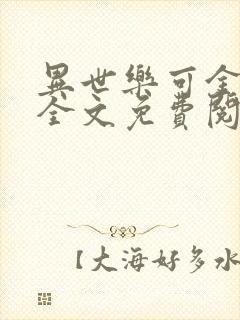 異世樂可全
全文免費閱
【大海好多水